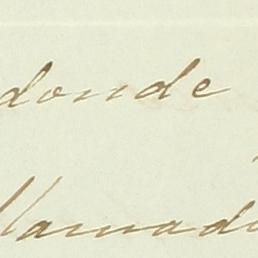 donde
llamado